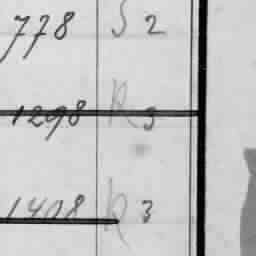 778 S 2
1298 R 3
1408 R 3